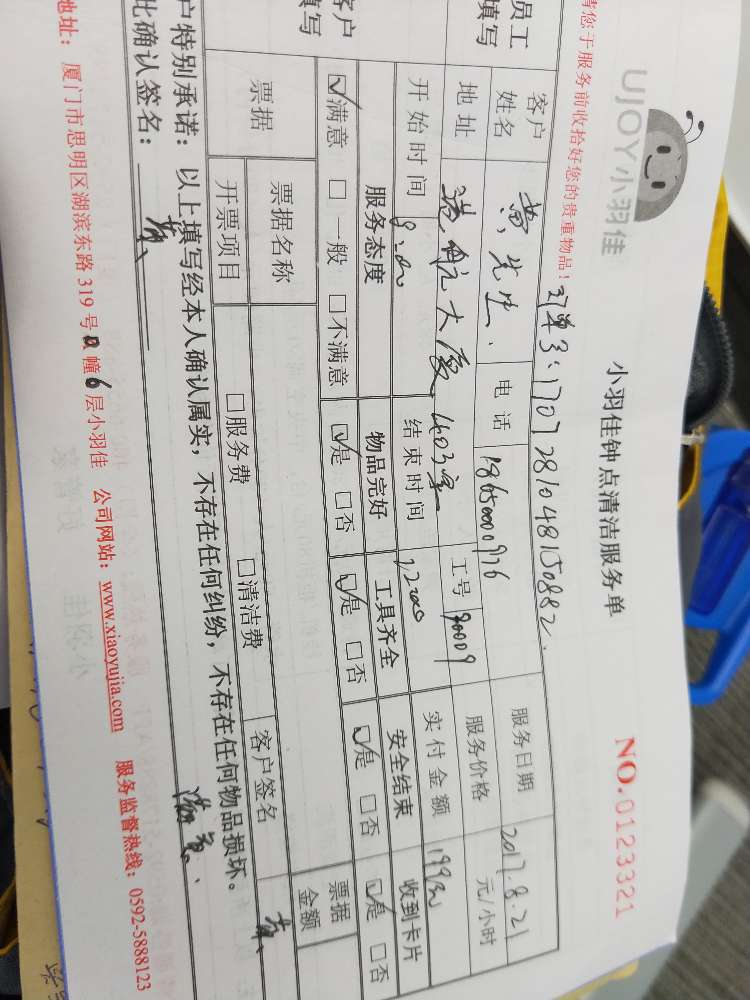 UJOY小羽佳
小羽佳钟点清洁服务单
NO.0123321
请您于服务前收拾好您的贵重物品!
订单3:1707281048150882.
员工
填写
客户
姓名
黄先生.
电话
18650000976
服务日期
2017.8.21
地址
港航大厦403室
工号
90009
服务价格
元/小时
开始时间
9:00
结束时间
12:00
实付金额
199元
客户
填写
服务态度
物品完好
工具齐全
安全结束
收到卡片
☑满意 □一般 □不满意
☑是 □否
☑是 □否
☑是 □否
☑是 □否
票据
票据名称
客户签名
票据
金额
开票项目
□服务费 □清洁费
户特别承诺:以上填写经本人确认属实,不存在任何纠纷,不存在任何物品损坏。
此确认签名:
地址:厦门市思明区湖滨东路319号a幢6层小羽佳 公司网站:www.xiaoyujia.com 服务监督热线:0592-5888123